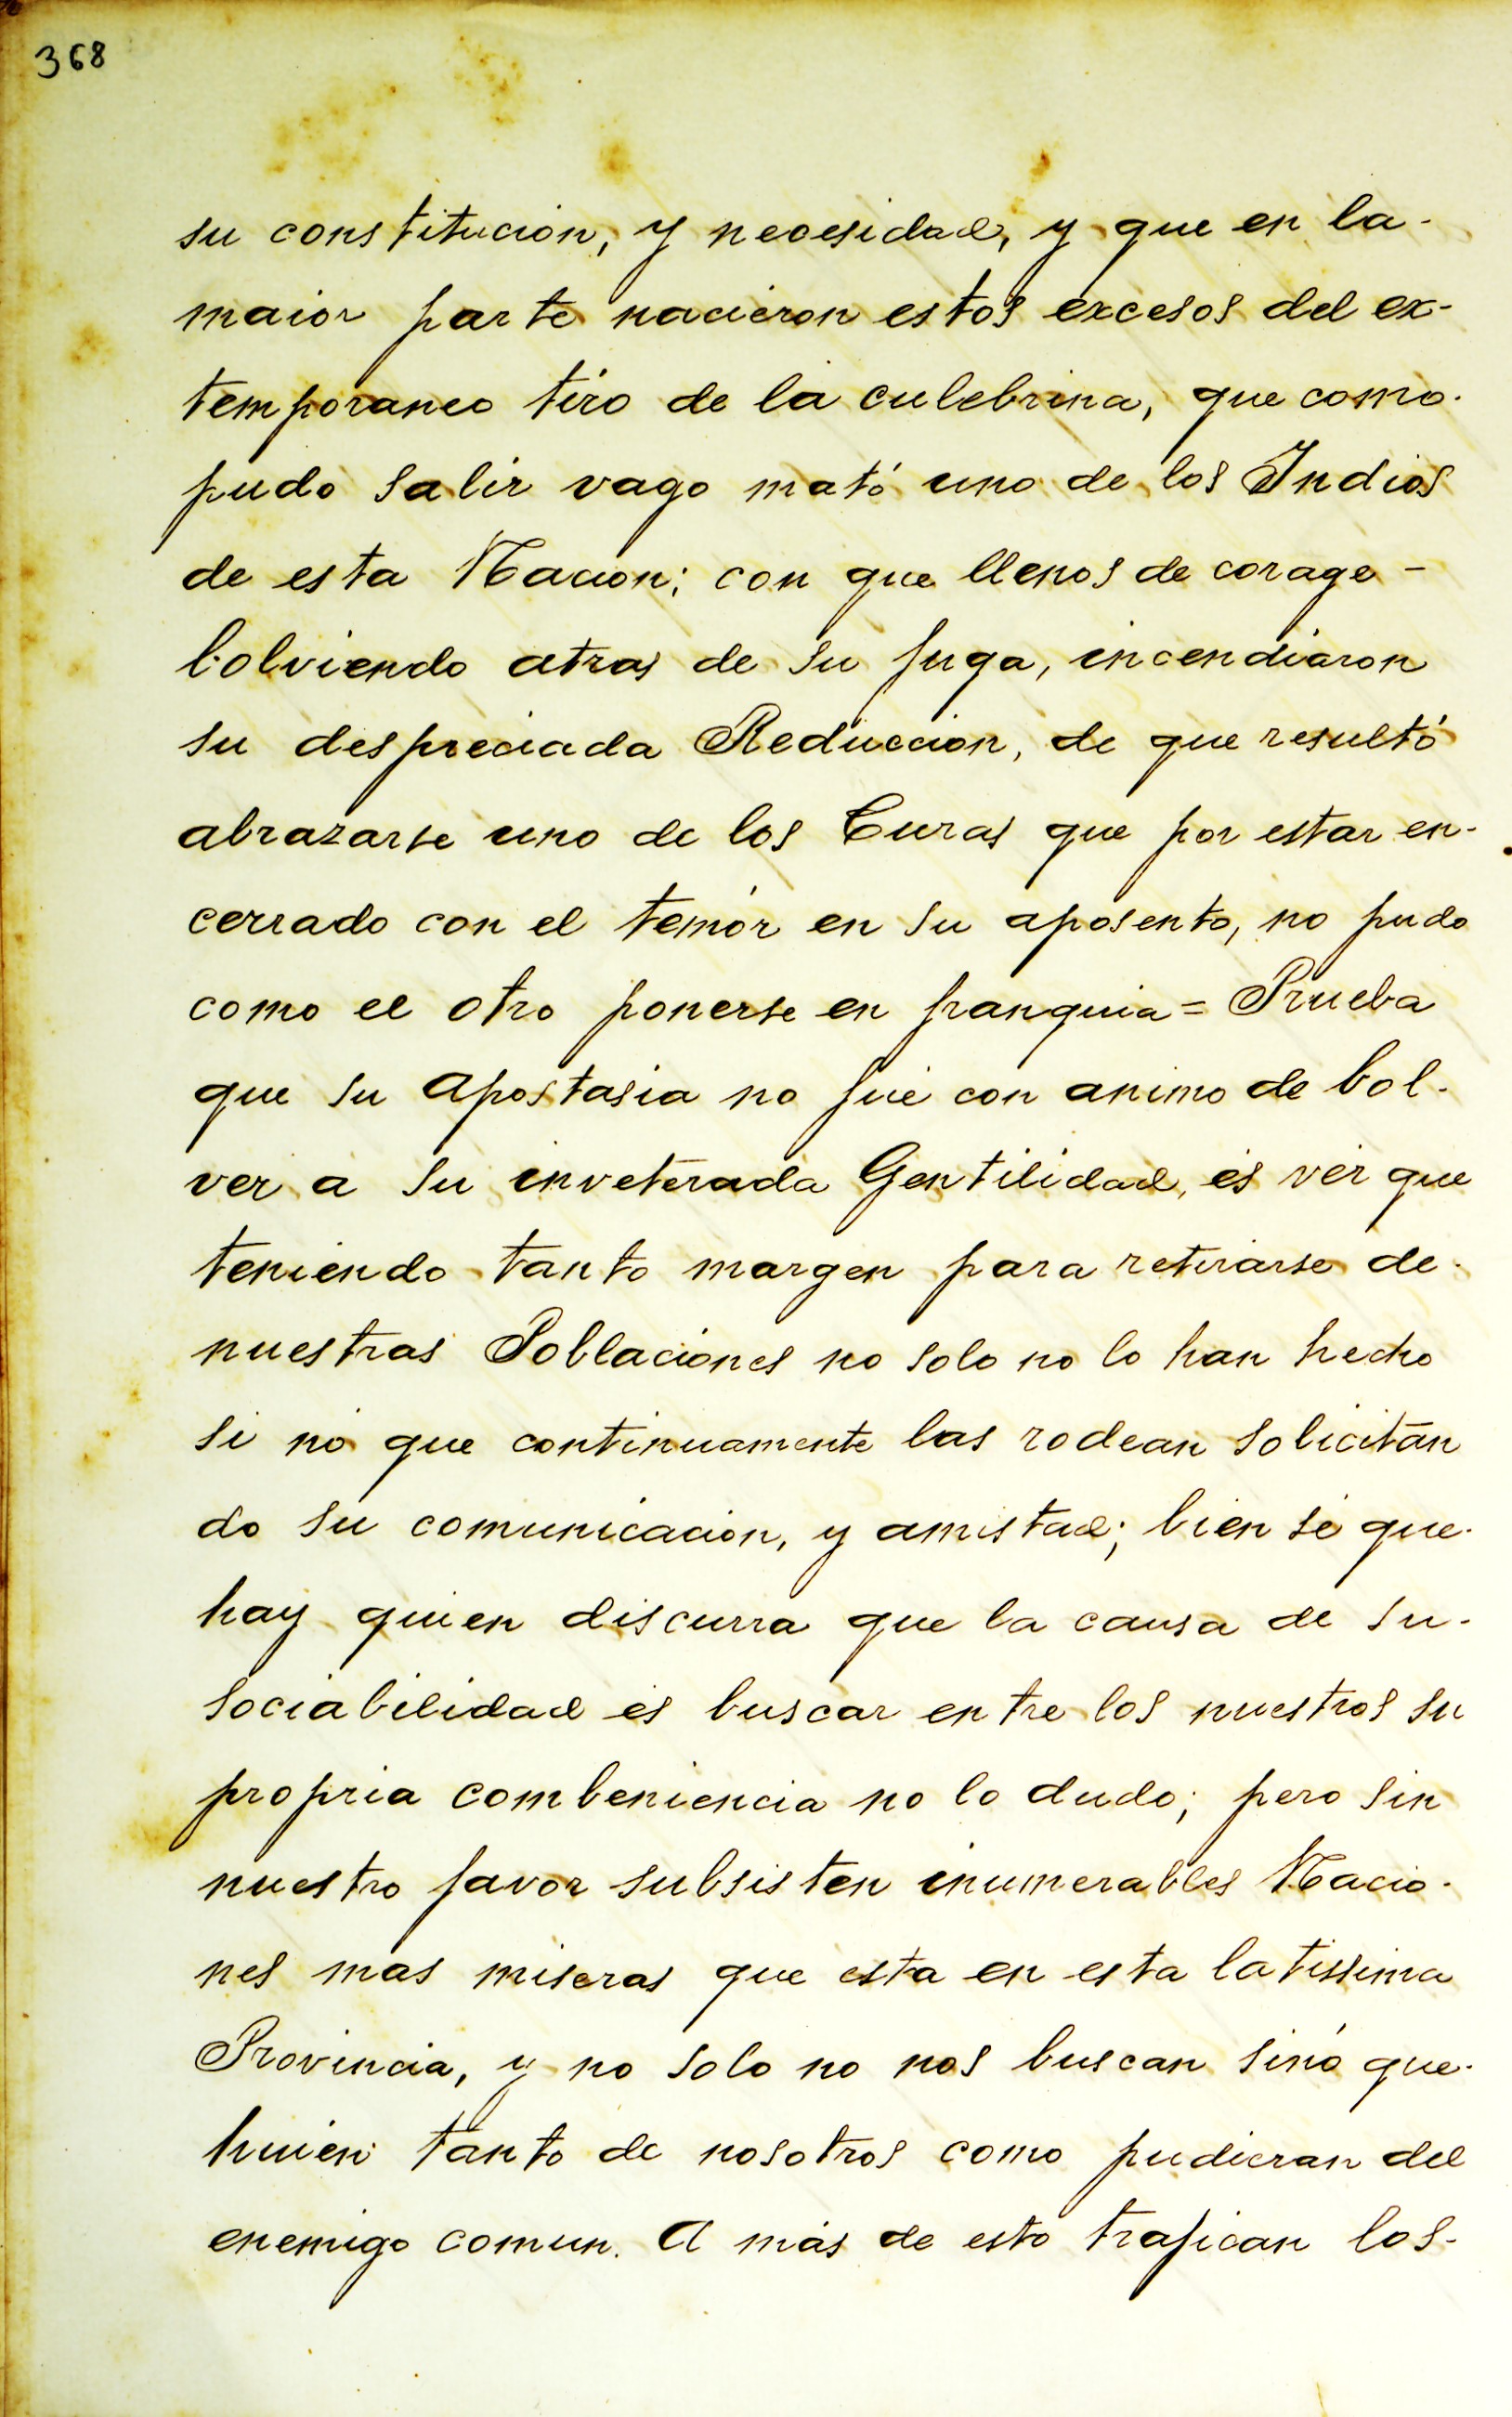 368
su constitucion, y necesidad, y que en la-
maior parte nacieron estos excesos del ex-
temporaneo tiro de la culebrina, que como-
pudo salir vago mató uno de los Indios
de esta Nacion; con que llenos de corage -
bolviendo atras de su fuga, incendiaron
su despreciada Reduccion, de que resultó
abrazarse uno de los Curas que por estar en-
cerrado con el temór en su aposento, no pudo
como el otro ponerse en franquia = Prueba
que su Apostasia no fué con animo de bol-
ver a su inveterada Gentilidad, és vér que
teniendo tanto margen para retirarse de-
nuestras Poblaciones no solo no lo han hecho
si nó que continuamente las rodean solicitan
do su comunicacion, y amistad; bien sé que-
hay quien discurra que la causa de su-
sociabilidad és buscar entre los nuestros su
propria combeniencia no lo dudo; pero sin
nuestro favor subsisten inumerables Nacio-
nes mas miseras que esta en esta latissima
Provincia, y no solo no nos buscan sinó que-
huién tanto de nosotros como pudieran del
enemigo comun. A más de esto trafican los-